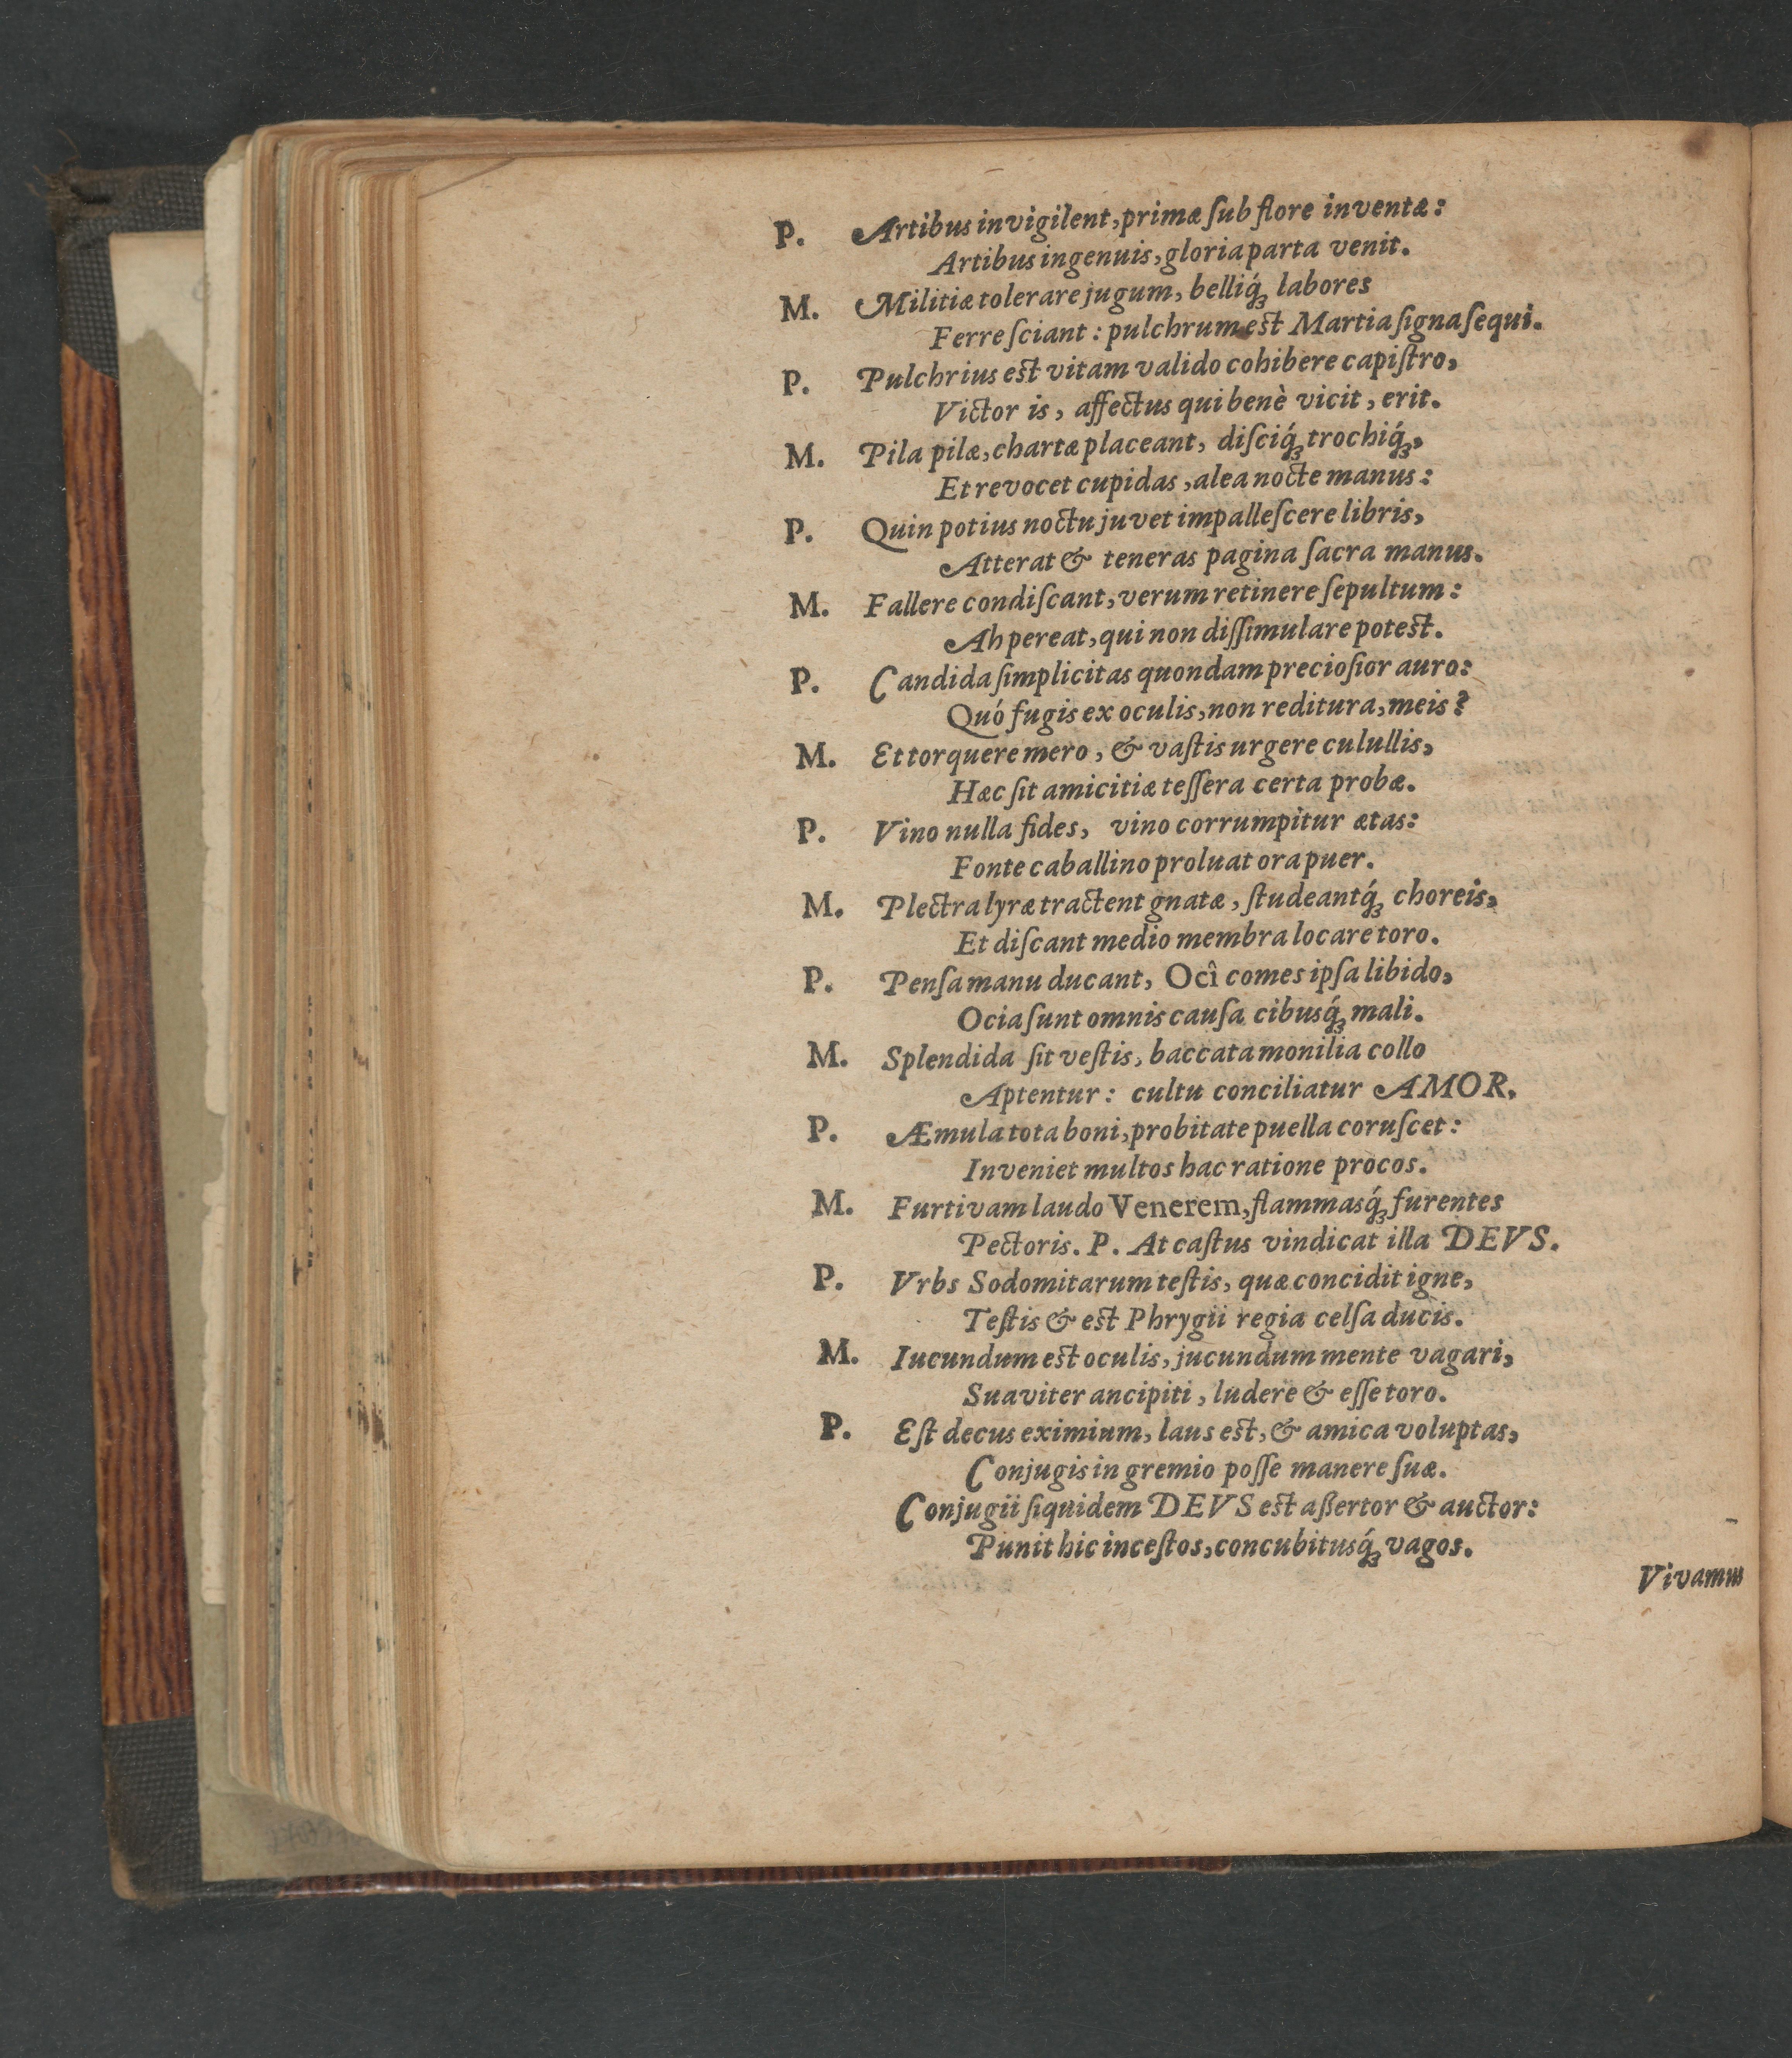 P. Artibus invigilent, primæ ſub flore inventæ:
Artibus ingenuis, gloria parta venit.
M. Militiæ tolerare jugum, belliq́ꝫ labores
Ferre ſciant: pulchrum est Martia ſigna ſequi.
P. Pulchrius est vitam valido cohibere capiſtro,
Victor is, affectus qui benè vicit, erit.
M. Pila pilæ, chartæ placeant, diſciq́ꝫ trochiq́ꝫ,
Et revocet cupidas, alea nocte manus:
P. Quin potius noctu juvet impalleſcere libris,
Atterat & teneras pagina ſacra manus.
M. Fallere condiſcant, verum retinere ſepultum:
Ah pereat, qui non diſſimulare potest.
P. Candida ſimplicitas quondam precioſior auro:
Quó fugis ex oculis, non reditura, meis?
M. Et torquere mero, & vaſtis urgere culullis,
Hæc ſit amicitiæ teſſera certa probæ.
P. Vino nulla fides, vino corrumpitur ætas:
Fonte caballino proluat ora puer.
M. Plectra lyræ tractent gnatæ, ſtudeantq́ꝫ choreis,
Et diſcant medio membra locare toro.
P. Penſa manu ducant, Ocî comes ipſa libido,
Ocia ſunt omnis cauſa cibusq́ꝫ mali.
M. Splendida ſit veſtis, baccata monilia collo
Aptentur: cultu conciliatur AMOR.
P. Æmula tota boni, probitate puella coruſcet:
Inveniet multos hac ratione procos.
M. Furtivam laudo Venerem, flammasq́ꝫ furentes
Pectoris. P. At caſtus vindicat illa DEVS.
P. Vrbs Sodomitarum teſtis, quæ concidit igne,
Teſtis & est Phrygii regia celſa ducis.
M. Iucundum est oculis, jucundum mente vagari,
Suaviter ancipiti, ludere & eſſe toro.
P. Eſt decus eximium, laus est, & amica voluptas,
Conjugis in gremio poſſe manere ſuæ.
Conjugii ſiquidem DEVS est aßertor & auctor:
Punit hic inceſtos, concubitusq́ꝫ vagos.
Vivamus